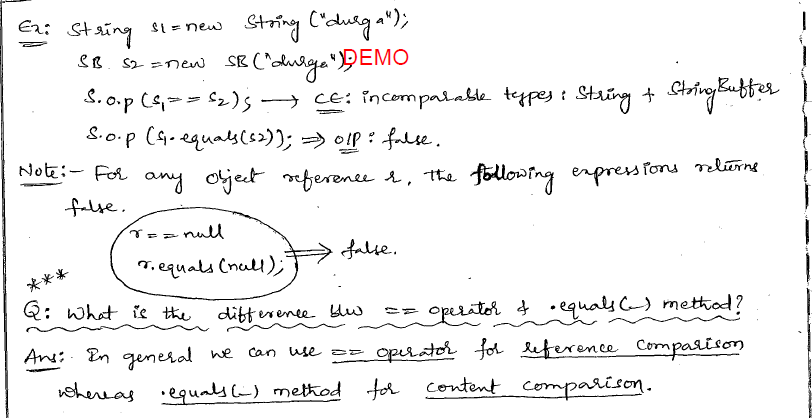 Ex: String s1 = new String ("durga");
SB s2 = new SB ("durga");
DEMO
S.o.p (s1 == s2); → CE: incomparable types: String + StringBuffer
S.o.p (s1.equals(s2)); ⇒ o/p: false.
Note:- For any object reference r, the following expressions returns
false.
r == null
r.equals(null); ⇒ false.
***
Q: What is the difference b/w == operator & .equals(-) method?
Ans: In general we can use == operator for reference comparison
whereas .equals(-) method for content comparison.